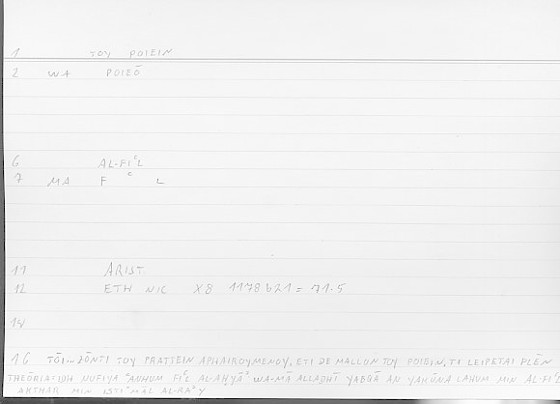 1 TOY POIEIN
2 WA POIEŌ
6 AL-FIʿL
7 MA F ʿ L
11 ARIST.
12 ETH NIC X8 1178b21 = 71.5
14
16 TŌI ... ZŌNTI TOY PRATTEIN APHAIROYMENOY, ETI DE MALLON TOY POIEIN, TI LEIPETAI PLĒN
THEŌRIA NUFIYA ʿANHUM FIʿL AL-AḤYĀʾ WA-MĀ ALLADHĪ YABQĀ AN YAKŪNA LAHUM MIN AL-FIʿL
AKTHAR MIN ISTIʿMĀL AL-RAʾY